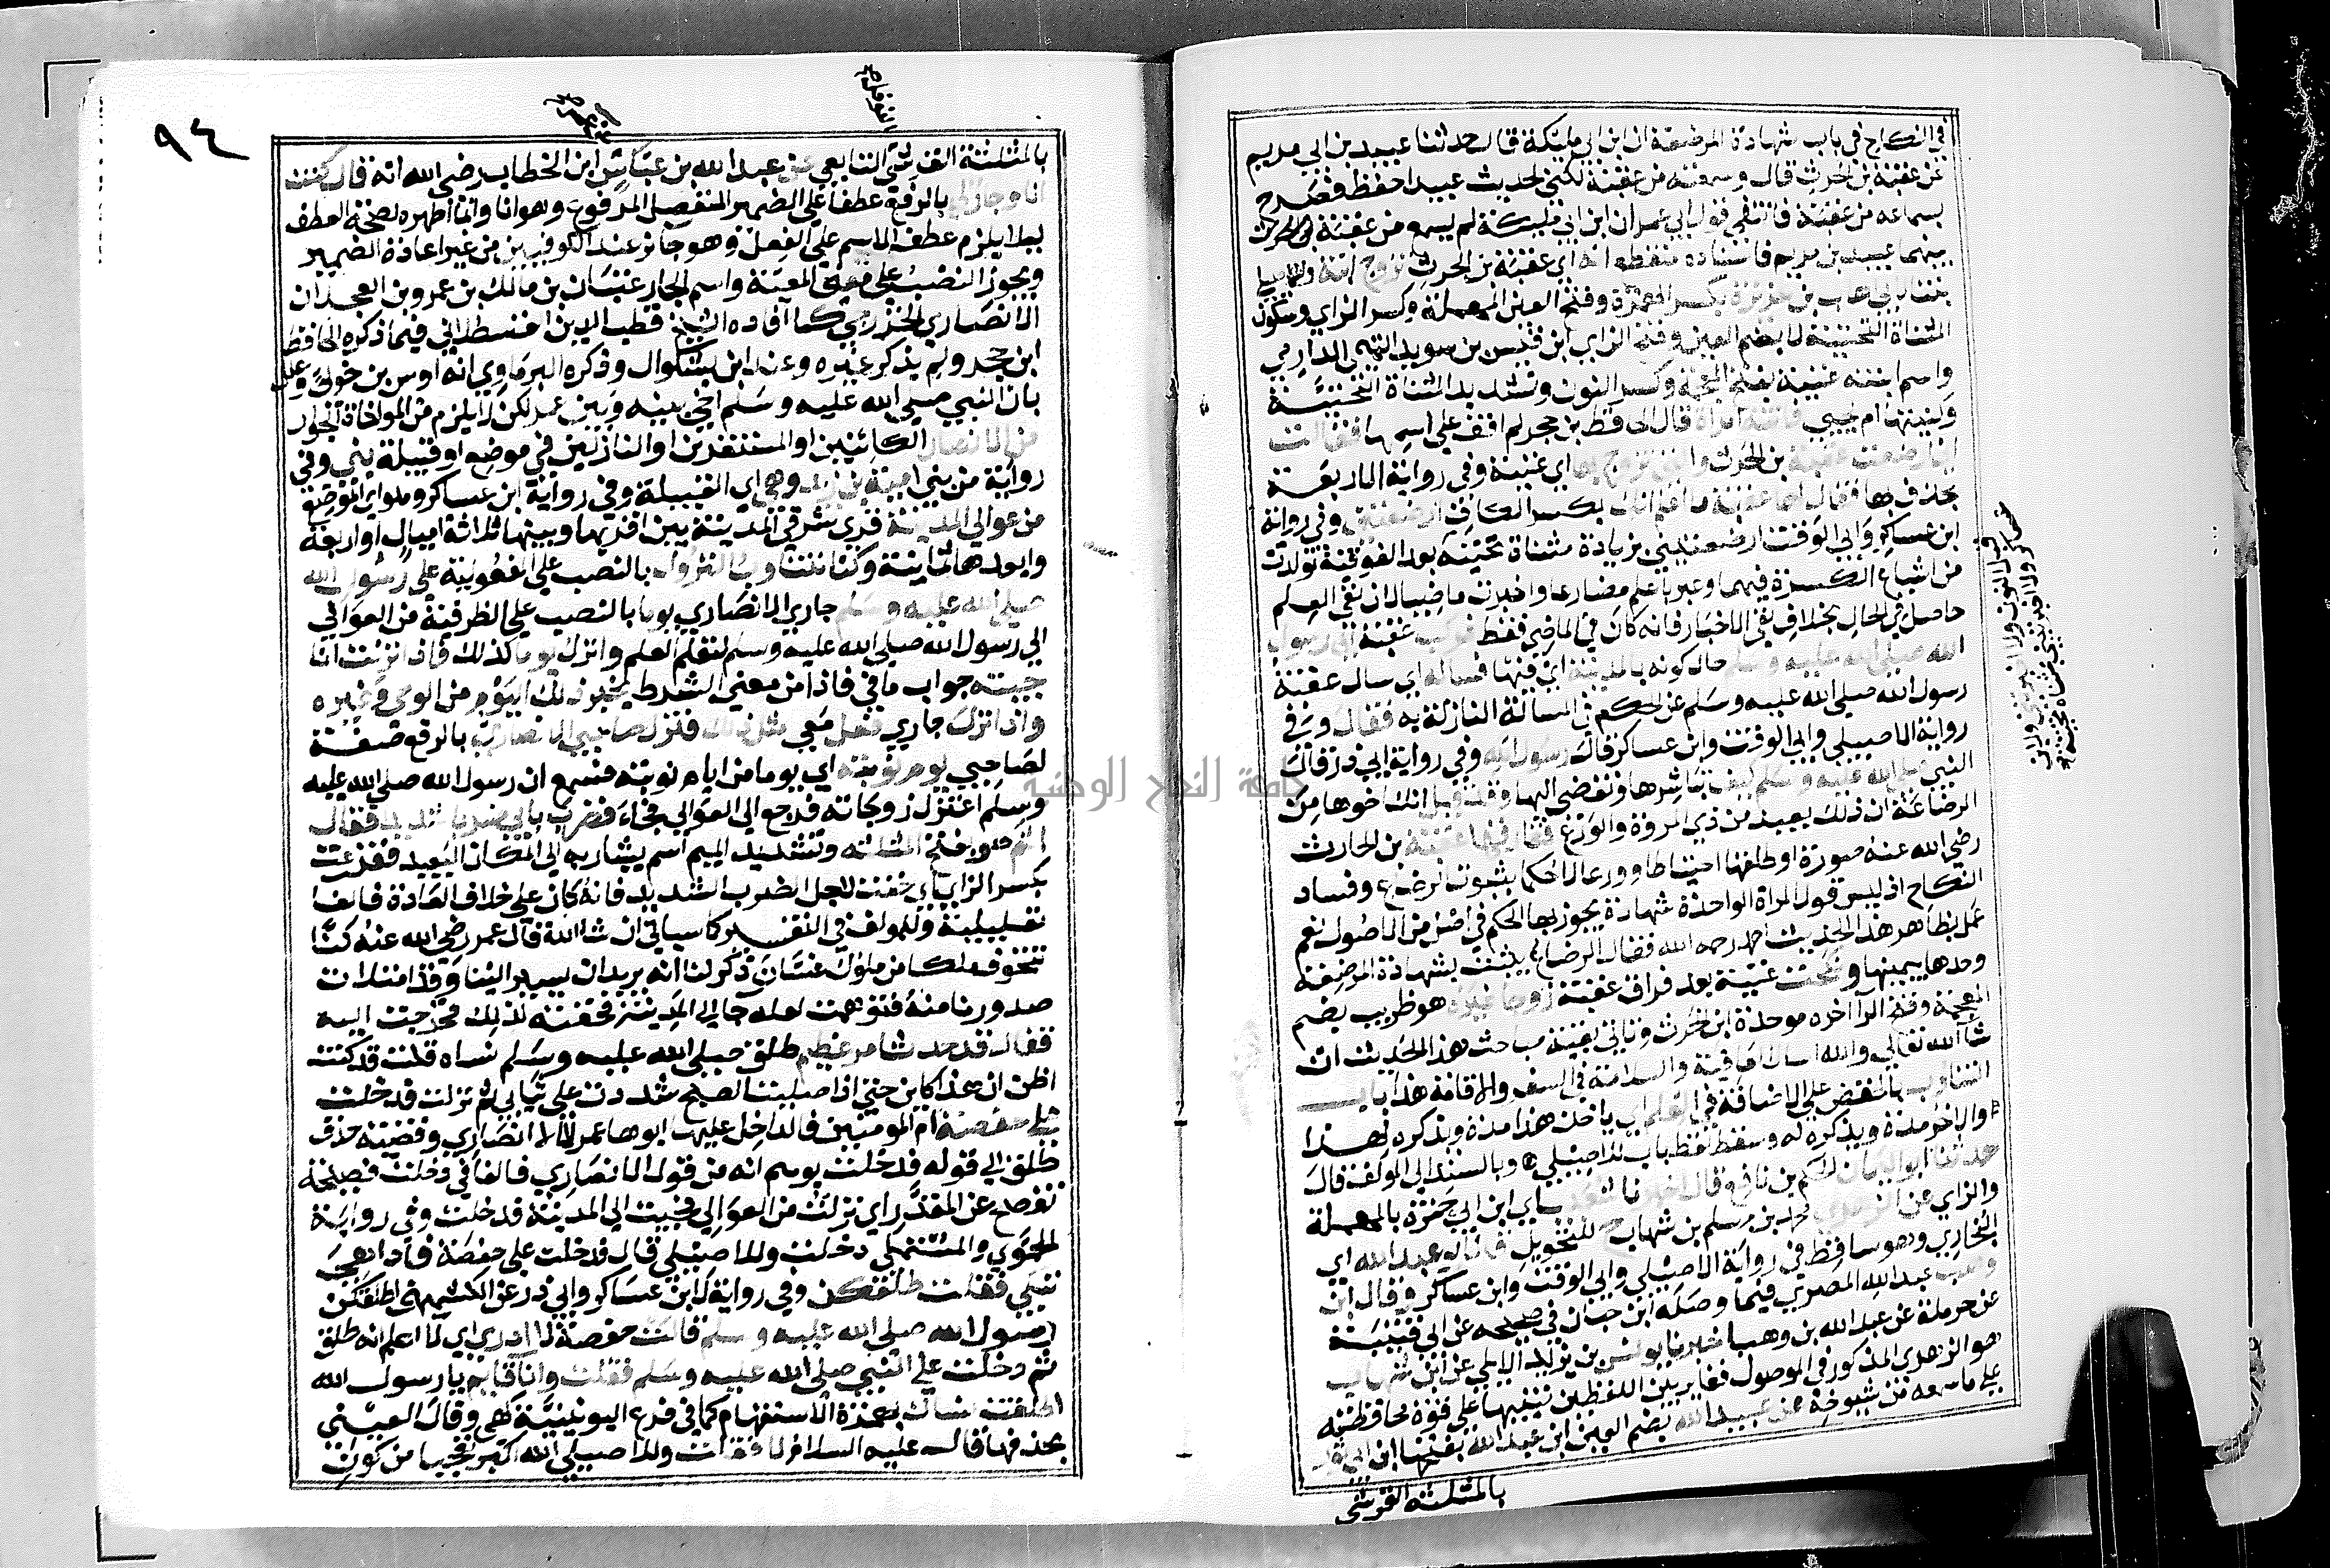 في النكاح في باب شهادة المرضعة ان ابن ابي مليكة قال حدثنا عبيد بن ابي مريم
عن عقبة بن الحرث قال وسمعته من عقبة لكني لحديث عبيد احفظ فصرح
بسماعه من عقبة فانتفى قول ابي عمر ان ابن ابي مليكة لم يسمع من عقبة
بينهما عبيد بن مريم فاسناده منقطع انه اي عقبة بن الحرث تزوج ابنة
لابي اهاب بن عزيز بكسر الهمزة وفتح العين المهملة وكسر الزاي وسكون
المثناة التحتية لا بضم العين وفتح الزاي ابن قيس بن سويد التميمي الدارمي
واسم ابنته غنية بفتح المعجمة وكسر النون وتشديد المثناة التحتية
وكنيتها ام يحيى فاتته امراة قال الحافظ بن حجر لم اقف على اسمها فقالت
اني ارضعت عقبة بن الحرث والتي تزوج بها اي غنية وفي رواية الاربعة
بحذف بها فقال لها عقبة ما اعلم انك بكسر الكاف ارضعتني وفي رواية
ابن عساكر وابي الوقت ارضعتيني بزيادة مثناة تحتية بعد الفوقية تولدت
من اشباع الكسرة فيهما وعبر باعلم مضارعا واخبرت ماضيا لان نفي العلم
حاصل في الحال بخلاف نفي الاخبار فانه كان في الماضي فقط فركب عقبة الى رسول
الله صلى الله عليه وسلم حال كونه بالمدينة اي فيها فساله اي سال عقبة
رسول الله صلى الله عليه وسلم عن الحكم في المسالة النازلة به فقال وفي
رواية الاصيلي وابي الوقت وابن عساكر قال رسول الله وفي رواية ابي ذر قال
النبي صلى الله عليه وسلم كيف تباشرها وتفضي اليها وقد قيل انك اخوها من
الرضاعة ان ذلك بعيد من ذي المروة والورع ففارقها عقبة بن الحارث
رضي الله عنه صورة او طلقها احتياطا وورعا لا حكما بثبوت الرضاع وفساد
النكاح اذ ليس قول المراة الواحدة شهادة يجوز بها الحكم في اصل من الاصول نعم
عمل بظاهر هذا الحديث احمد رحمه الله فقال الرضاع يثبت بشهادة المرضعة
وحدها بيمينها ونكحت غنية بعد فراق عقبة زوجا غيره هو ظريب بضم
المعجمة وفتح الرا اخره موحدة ابن الحرث وتاتي بقية مباحث هذا الحديث ان
شا الله تعالى والله اسال العافية والسلامة في السفر والاقامة هذا باب
التناوب بالخفض على الاضافة في العلم اي ياخذ هذا مدة ويذكره لهذا
والاخر مدة ويذكره له وسقط لفظ باب للاصيلي وبالسند الى المولف قال
حدثنا ابو اليمان الحكم بن نافع قال اخبرنا شعيب اي ابن ابي حمزة بالمهملة
والزاي عن الزهري محمد بن مسلم بن شهاب ح للتحويل قال ابو عبد الله اي
البخاري وهو ساقط في رواية الاصيلي وابي الوقت وابن عساكر وقال ابن
وهب عبد الله المصري فيما وصله ابن حبان في صحيحه عن ابن قتيبة
عن حرملة عن عبد الله بن وهب اخبرنا يونس بن يزيد الايلي عن ابن شهاب
هو الزهري المذكور في الموصول فغاير بين اللفظين تنبيها على قوة محافظته
على ما سمعه من شيوخه عن عبيد الله بضم العين ابن عبد الله بفتحها ابن ابي ثور
بالمثلثة القرشي
٩٤
بالمثلثة القرشي التابعي عن عبد الله بن عباس عن ابن الخطاب رضي الله انه قال كنت
انا وجار لي بالرفع عطفا على الضمير المنفصل المرفوع وهو انا وانما اظهره لصحة العطف
ليلا يلزم عطف الاسم على الفعل وهو جائز عند الكوفيين من غير اعادة الضمير
ويجوز النصب على معنى المعية واسم الجار عتبان بن مالك بن عمرو بن العجلان
الانصاري الخزرجي كما افاده الشيخ قطب الدين القسطلاني فيما ذكره الحافظ
ابن حجر ولم يذكر غيره وعند ابن بشكوال وذكره البرماوي انه اوس بن خولي وعلل
بان النبي صلى الله عليه وسلم اخى بينه وبين عمر لكن لا يلزم من المواخاة الجوار
من الانصار الكائنين او المستقرين او النازلين في موضع او قبيلة بني وفي
رواية من بني امية بن زيد وهي اي القبيلة وفي رواية ابن عساكر وهو اي الموضع
من عوالي المدينة قرى شرقي المدينة بين اقربها وبينها ثلاثة اميال او اربعة
وابعدها ثمانية وكنا نتناوب النزول بالنصب على المفعولية على رسول الله
صلى الله عليه وسلم جاري الانصاري يوما بالنصب على الظرفية من العوالي
الى رسول الله صلى الله عليه وسلم لتعلم العلم وانزل يوما كذلك فاذا نزلت انا
جيته جواب ما في فاذا من معنى الشرط بخبر ذلك اليوم من الوحي وغيره
واذا نزل جاري فعل معي مثل ذلك فنزل صاحبي الانصاري بالرفع صفة
لصاحبي يوم نوبته اي يوما من ايام نوبته فسمع ان رسول الله صلى الله عليه
وسلم اعتزل زوجاته فرجع الى العوالي فجاء فضرب بابي ضربا شديدا فقال
اثم هو بفتح المثلثة وتشديد الميم اسم يشار به الى المكان البعيد ففزعت
بكسر الزاي اي خفت لاجل الضرب الشديد فانه كان على خلاف العادة فالفا
تعليلية وللمولف في التفسير كما سياتي ان شا الله قال عمر رضي الله عنه كنا
نتخوف ملكا من ملوك غسان ذكر لنا انه يريد ان يسير الينا وقد امتلات
صدورنا منه فتوهمت لعله جا الى المدينة فخفته لذلك فخرجت اليه
فقال قد حدث امر عظيم طلق صلى الله عليه وسلم نساه قلت قد كنت
اظن ان هذا كاين حتى اذا صليت الصبح شددت علي ثيابي ثم نزلت فدخلت
على حفصة ام المومنين فالداخل عليها ابوها عمر لا الانصاري وقضية حذف
طلق الى قوله فدخلت يوهم انه من قول الانصاري فالفا في دخلت فصيحة
تفصح عن المقدر اي نزلت من العوالي فجيت الى المدينة فدخلت وفي رواية
الحموي والمستملي دخلت وللاصيلي قال فدخلت على حفصة فاذا هي
تبكي فقلت طلقكن وفي رواية لابن عساكر وابي ذر عن الكشميهني اطلقكن
رسول الله صلى الله عليه وسلم قالت حفصة لا ادري اي لا اعلم انه طلق
ثم دخلت على النبي صلى الله عليه وسلم فقلت وانا قايم يا رسول الله
اطلقت نساك بهمزة الاستفهام كما في فرع اليونينية كهي وقال العيني
بحذفها قال عليه السلام لا فقلت وللاصيلي الله اكبر تعجبا من كون
جامعة النجاح الوطنية